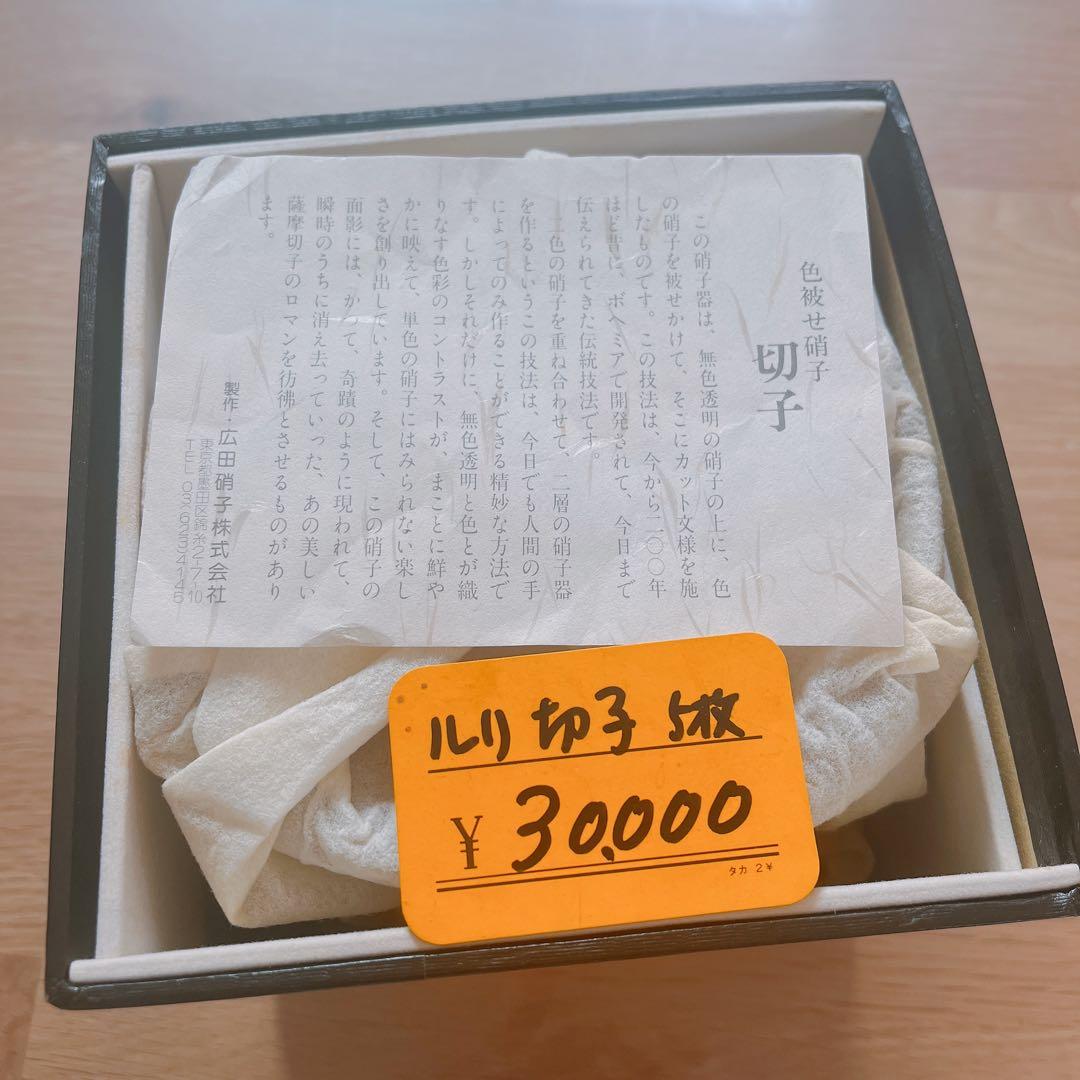 色被せ硝子
切子
この硝子器は、無色透明の硝子の上に、色
の硝子を被せかけて、そこにカット文様を施
したものです。この技法は、今から二〇〇年
ほど昔に、ボヘミアで開発されて、今日まで
伝えられてきた伝統技法です。
二色の硝子を重ね合わせて、二層の硝子器
を作るというこの技法は、今日でも人間の手
によってのみ作ることができる精妙な方法で
す。しかしそれだけに、無色透明と色とが織
りなす色彩のコントラストが、まことに鮮や
かに映えて、単色の硝子にはみられない楽し
さを創り出しています。そして、この硝子の
面影には、かつて、奇蹟のように現われて、
瞬時のうちに消え去っていった、あの美しい
薩摩切子のロマンを彷彿とさせるものがあり
ます。
製作・広田硝子株式会社
東京都墨田区錦糸2-7-10
TEL 03(623)4145
ルリ 切子 5枚
¥ 30,000
タカ 2¥